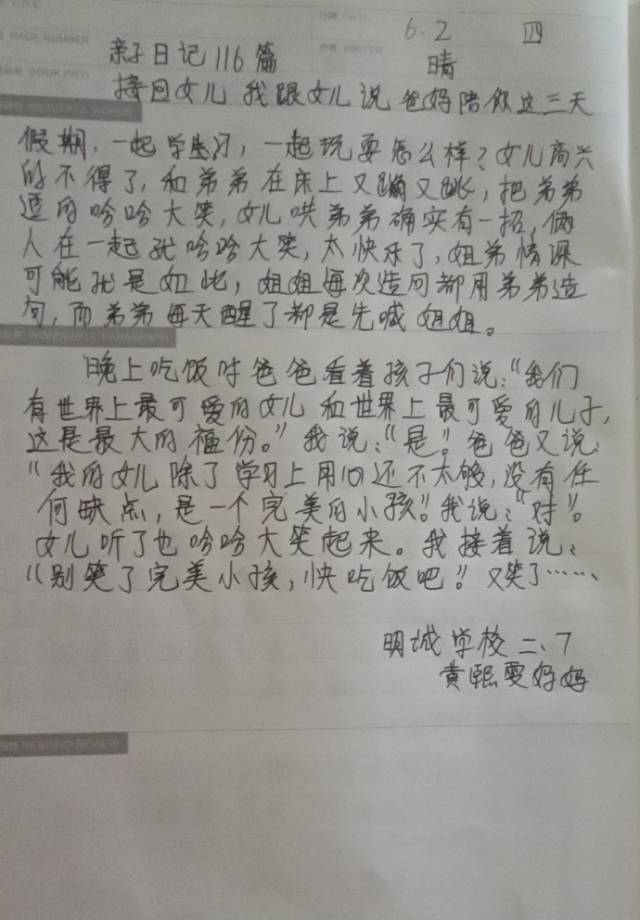 6.2 四
亲子日记116篇 晴
接回女儿 我跟女儿说 爸妈陪你这三天
假期,一起学习,一起玩耍怎么样?女儿高兴
的不得了,和弟弟在床上又蹦又跳,把弟弟
逗的哈哈大笑,女儿哄弟弟确实有一招,俩
人在一起就哈哈大笑,太快乐了,姐弟情深
可能就是如此,姐姐每次造句都用弟弟造
句,而弟弟每天醒了都是先喊姐姐。
晚上吃饭时爸爸看着孩子们说:“我们
有世界上最可爱的女儿和世界上最可爱的儿子,
这是最大的福份。”我说:“是”。爸爸又说:
“我的女儿除了学习上用心还不太够,没有任
何缺点,是一个完美的小孩”。我说:“对”。
女儿听了也哈哈大笑起来。我接着说:
“别笑了完美小孩,快吃饭吧”。又笑了……
明诚学校二、7
黄熙雯妈妈
READING REVIEW